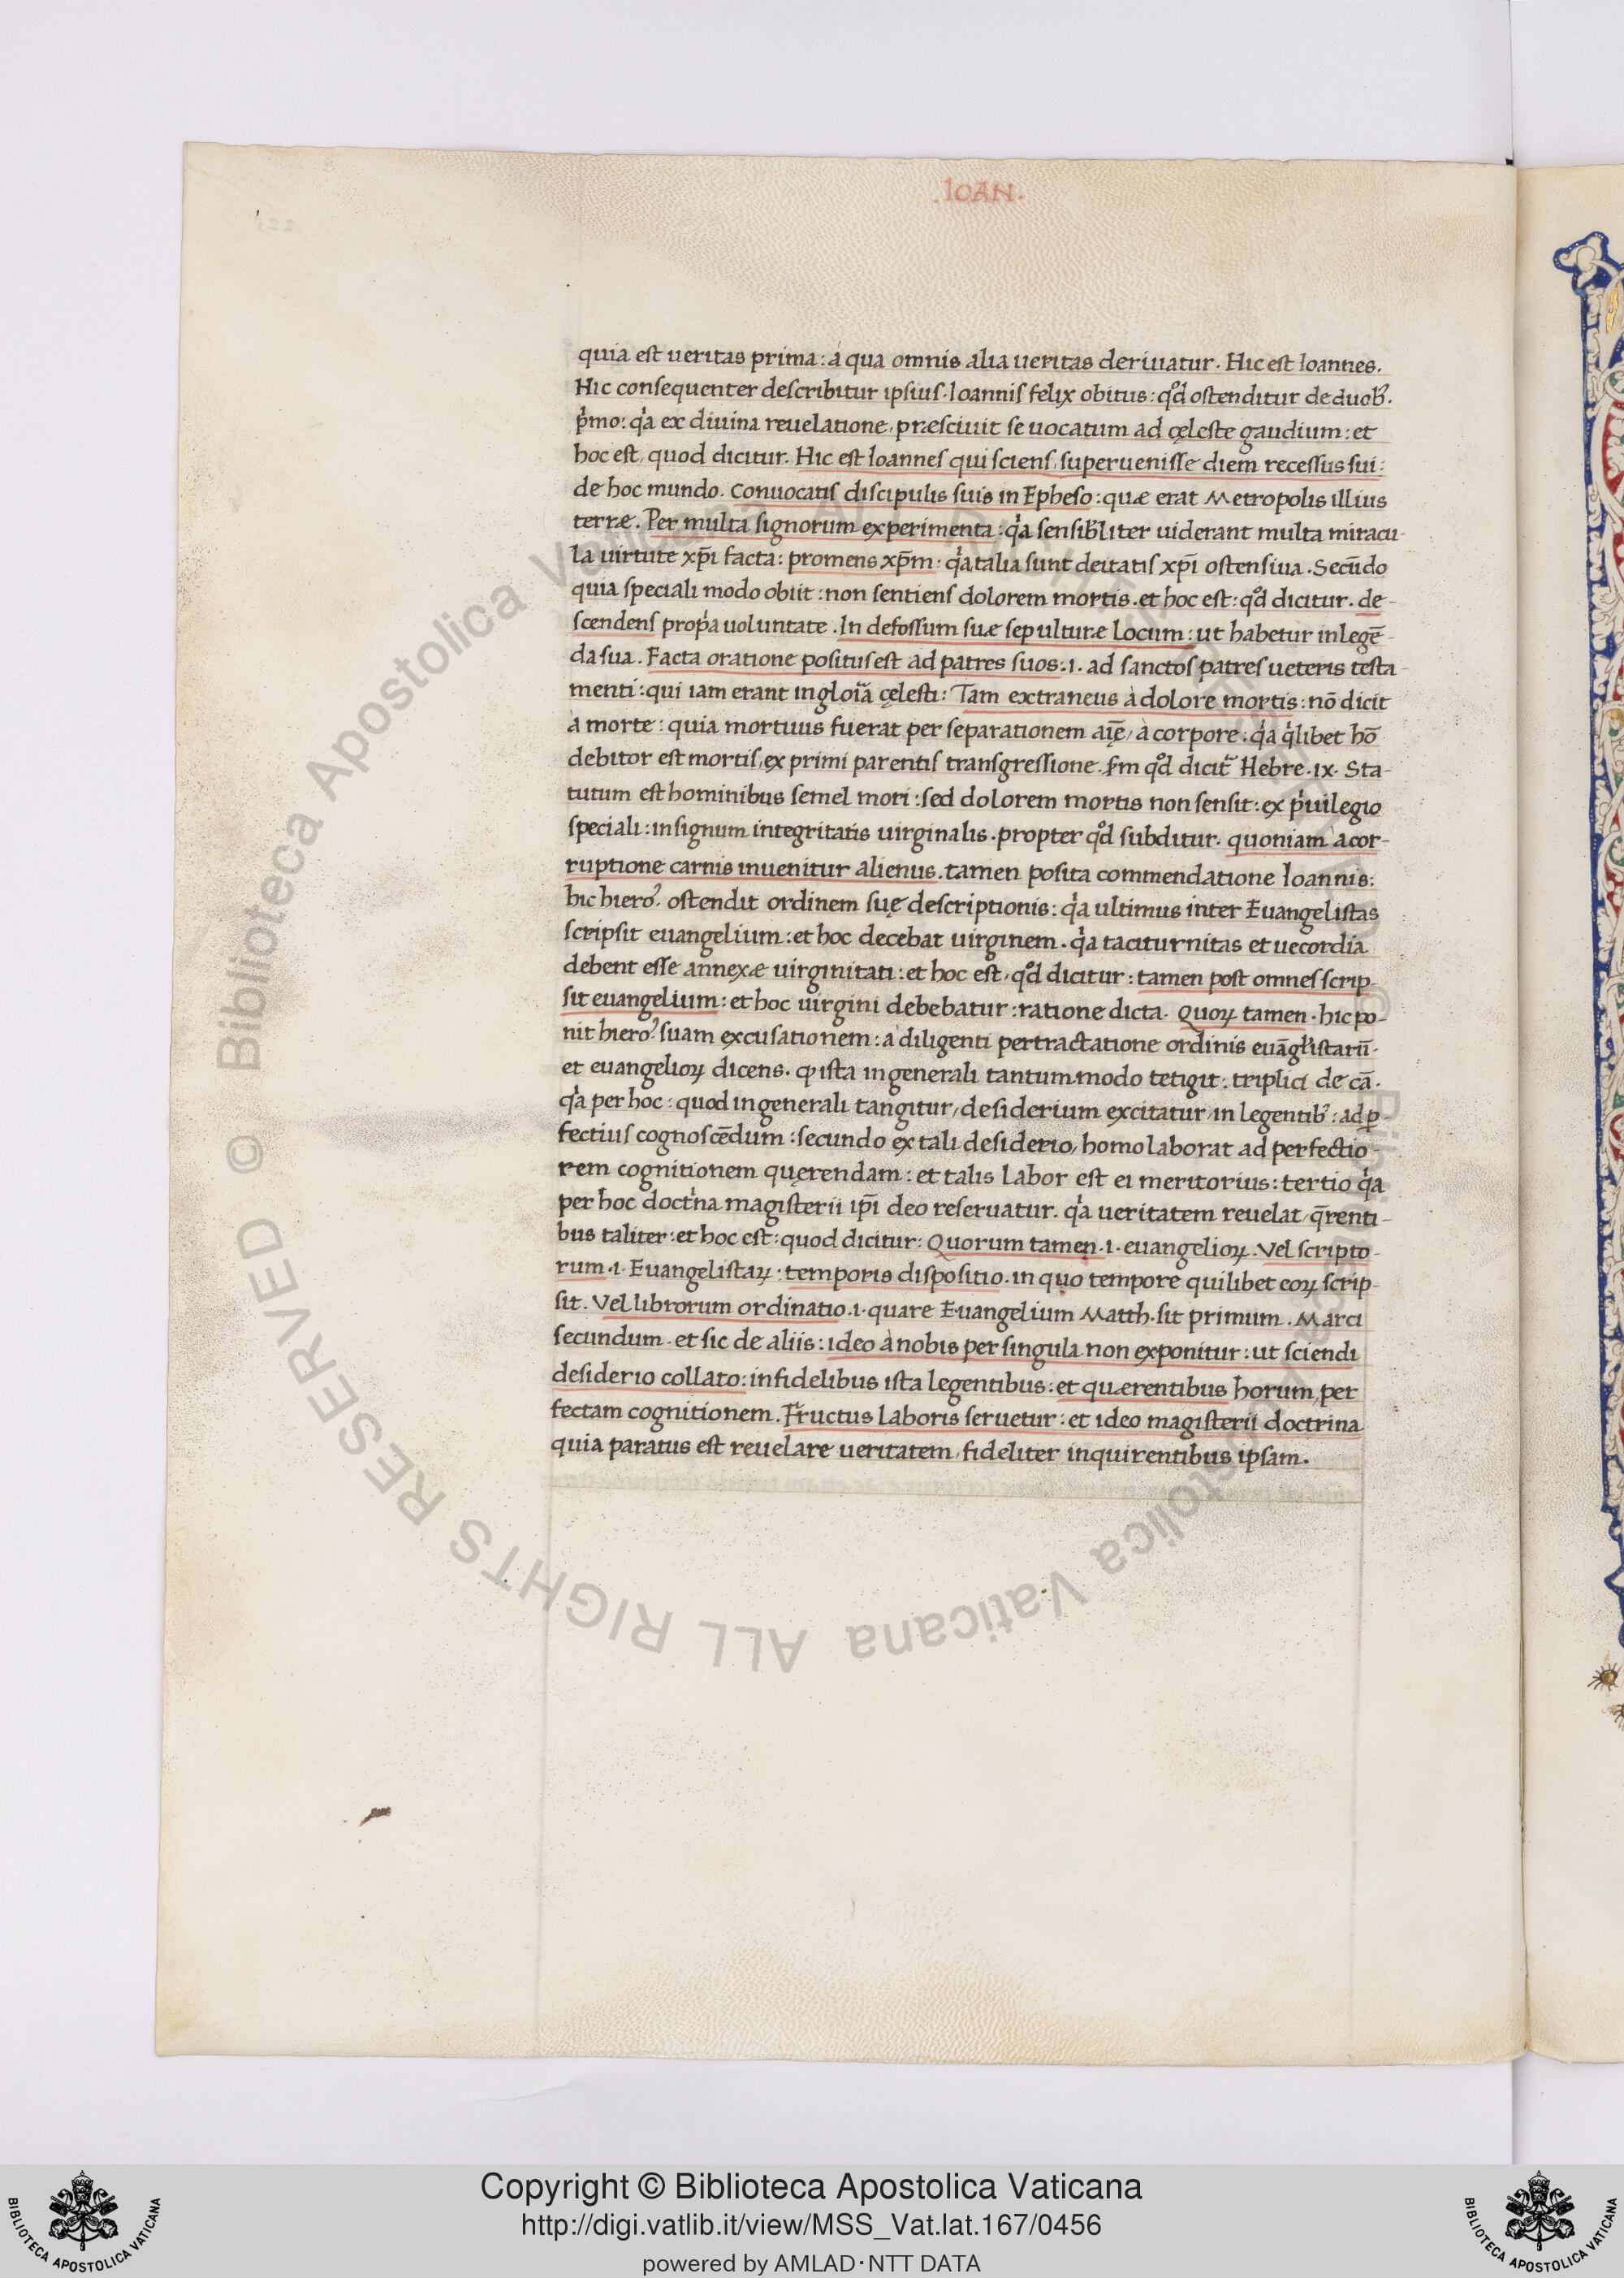 .IOAN.
quia est ueritas prima: a qua omnis alia ueritas deriuatur. Hic est Ioannes.
Hic consequenter describitur ipsius. Ioannis felix obitus: qd̊ ostenditur de duob᾿.
p̓mo: q̓a ex diuina reuelatione, præsciuit se uocatum ad cęleste gaudium: et
hoc est, quod dicitur. Hic est Ioannes qui sciens, superuenisse diem recessus sui:
de hoc mundo. Conuocatis discipulis suis in Epheso: quæ erat Metropolis illius
terræ. Per multa signorum experimenta: q̓a sensibl̓iter uiderant multa miracu-
la uirtute xp̄i facta: promens xp̄m: q̓a talia sunt deitatis xp̄i ostensiua. Secūdo
quia speciali modo obiit: non sentiens dolorem mortis. et hoc est: qd̊ dicitur. de-
scendens prop̓a uoluntate. In defossum suæ sepulturæ locum: ut habetur in legē-
da sua. Facta oratione positus est ad patres suos: .i. ad sanctos patres ueteris testa-
menti: qui iam erant in glo̓ia cęlesti: Tam extraneus a dolore mortis: nō dicit
a morte: quia mortuus fuerat per separationem aīę, a corpore: q̓a q̓libet hō
debitor est mortis, ex primi parentis transgressione. ẜm qd̊ dicit̃ Hebre. ix. Sta-
tutum est hominibus semel mori: sed dolorem mortis non sensit: ex p̓uilegio
speciali: in signum integritatis uirginalis. propter qd̊ subditur. quoniam a cor-
ruptione carnis inuenitur alienus. tamen posita commendatione Ioannis:
hic hiero᾿. ostendit ordinem suę descriptionis: q̓a ultimus inter Euangelistas
scripsit euangelium: et hoc decebat uirginem. q̓a taciturnitas et uecordia
debent esse annexæ uirginitati: et hoc est, qd̊ dicitur: tamen post omnes scrip-
sit euangelium: et hoc uirgini debebatur: ratione dicta. Quoꝝ tamen. hic po-
nit hiero᾿. suam excusationem: a diligenti pertractatione ordinis euāgl̓istarū.
et euangelioꝝ dicens. ꝙ ista in generali tantummodo tetigit: triplici de cā.
q̓a per hoc: quod in generali tangitur, desiderium excitatur, in legentib᾿: ad ꝑ-
fectius cognoscēdum: secundo ex tali desiderio, homo laborat ad perfectio-
rem cognitionem quęrendam: et talis labor est ei meritorius: tertio q̓a
per hoc doct̓na magisterii ip̄i deo reseruatur. q̓a ueritatem reuelat, q̄renti-
bus taliter: et hoc est: quod dicitur: Quorum tamen .i. euangelioꝝ. Vel scripto-
rum .i. Euangelistaꝝ: temporis dispositio. in quo tempore quilibet eoꝝ scrip-
sit. Vel librorum ordinatio .i. quare Euangelium Matth. sit primum. Marci
secundum. et sic de aliis: ideo a nobis per singula non exponitur: ut sciendi
desiderio collato: in fidelibus ista legentibus: et quærentibus horum, per
fectam cognitionem. Fructus laboris seruetur: et ideo magisterii doctrina
quia paratus est reuelare ueritatem, fideliter inquirentibus ipsam.
© Biblioteca Apostolica Vaticana ALL RIGHTS RESERVED
© Biblioteca Apostolica Vaticana ALL RIGHTS RESERVED
BIBLIOTECA APOSTOLICA VATICANA
Copyright © Biblioteca Apostolica Vaticana
http://digi.vatlib.it/view/MSS_Vat.lat.167/0456
powered by AMLAD · NTT DATA
BIBLIOTECA APOSTOLICA VATICANA